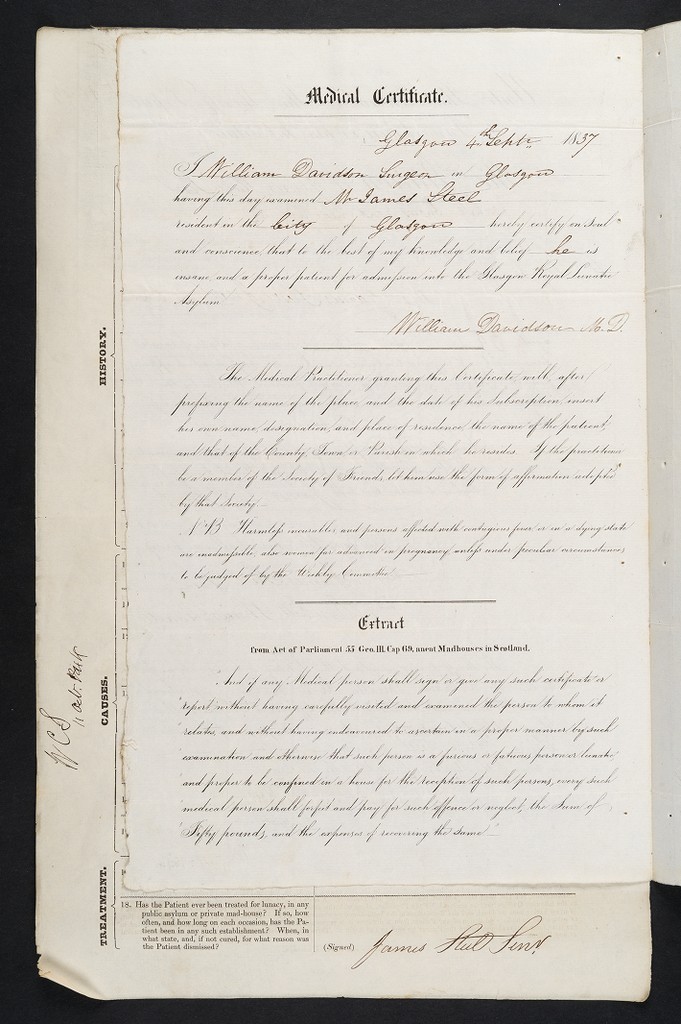 Medical Certificate.
Glasgow 4th Septr 1837
I William Davidson Surgeon in Glasgow
having this day examined Mr James Steel
resident in the City of Glasgow hereby certify on Soul
and conscience, that to the best of my knowledge and belief he is
insane, and a proper patient for admission into the Glasgow Royal Lunatic
Asylum
William Davidson M.D.
The Medical Practitioner granting this Certificate, will, after
prefixing the name of the place, and the date of his Subscription, insert
his own name, designation, and place of residence, the name of the patient,
and that of the County, Town or Parish in which he resides. If the practitioner
be a member of the Society of Friends, let him use the form of affirmation adopted
by that Society
N.B. Harmless incurables, and persons affected with contagious fever, or in a dying state
are inadmissible, also women far advanced in pregnancy, unless under peculiar circumstances,
to be judged of by the Weekly Committee
Extract
from Act of Parliament 55 Geo. III. Cap 69, anent Madhouses in Scotland.
"And if any Medical person shall sign or give any such certificate or
"report without having carefully visited and examined the person to whom it
"relates, and without having endeavoured to ascertain in a proper manner by such
"examination and otherwise that such person is a furious or fatuous person or lunatic
"and proper to be confined in a house for the reception of such persons, every such
"medical person shall forfeit and pay for such offence or neglect, the Sum of
"Fifty pounds, and the expenses of recovering the same"
HISTORY.
CAUSES.
TREATMENT.
11 Oct.
18. Has the Patient ever been treated for lunacy, in any
public asylum or private mad-house? If so, how
often, and how long on each occasion, has the Pa-
tient been in any such establishment? When, in
what state, and, if not cured, for what reason was
the Patient dismissed?
(Signed) James Steel Senr.